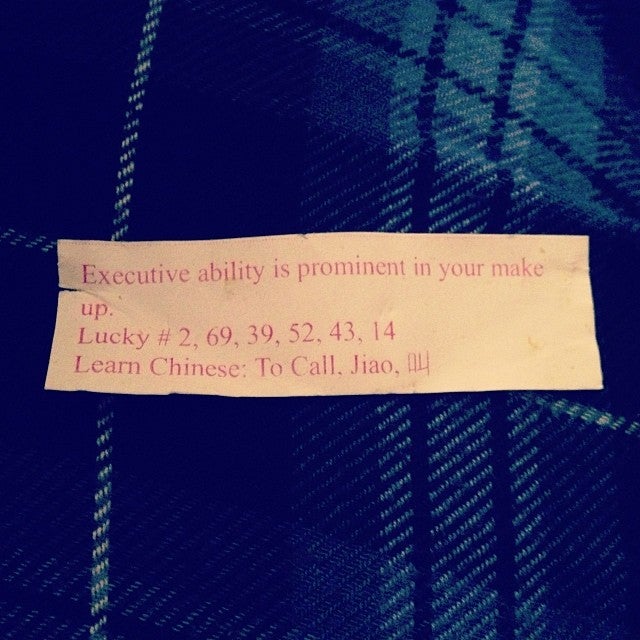 Executive ability is prominent in your make
up.
Lucky # 2, 69, 39, 52, 43, 14
Learn Chinese: To Call, Jiao, 叫